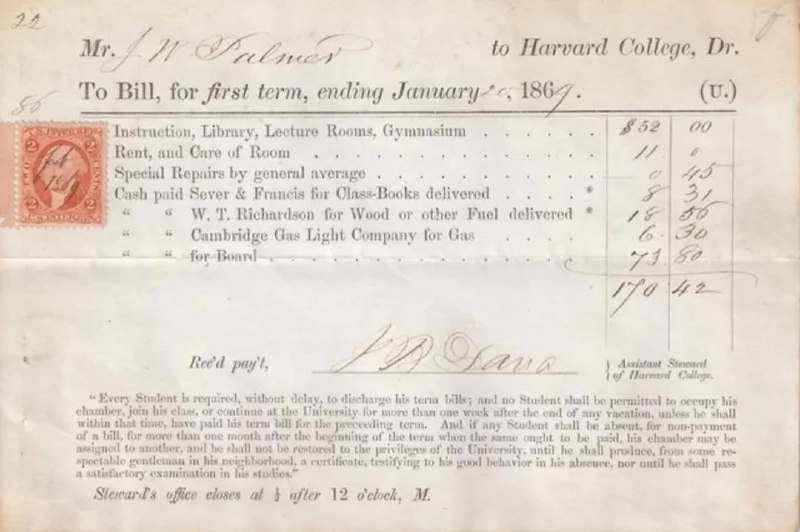 22
Mr. J W Palmer to Harvard College, Dr.
To Bill, for first term, ending January 20, 1869. (U.)
86
Instruction, Library, Lecture Rooms, Gymnasium . . . . . . $52 00
Rent, and Care of Room . . . . . . . . . . . . . 11 0
Special Repairs by general average . . . . . . . . . . 0 45
Cash paid Sever & Francis for Class-Books delivered . . . . * 8 31
" " W. T. Richardson for Wood or other Fuel delivered * 18 56
" " Cambridge Gas Light Company for Gas . . . . 6 30
" " for Board . . . . . . . . . . . . . . 73 80
170 42
U.S. INTER. REV.
TWO CENTS
2 2
Feb
1869
Rec'd pay't, J B Dana } Assistant Steward
} of Harvard College.
"Every Student is required, without delay, to discharge his term bills; and no Student shall be permitted to occupy his
chamber, join his class, or continue at the University for more than one week after the end of any vacation, unless he shall
within that time, have paid his term bill for the preceeding term. And if any Student shall be absent, for non-payment
of a bill, for more than one month after the beginning of the term when the same ought to be paid, his chamber may be
assigned to another, and he shall not be restored to the privileges of the University, until he shall produce, from some re-
spectable gentleman in his neighborhood, a certificate, testifying to his good behavior in his absence, nor until he shall pass
a satisfactory examination in his studies."
Steward's office closes at ½ after 12 o'clock, M.